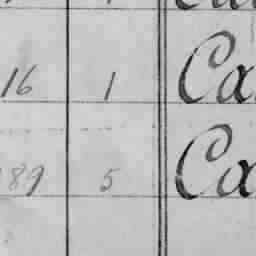 16 1 Ca
89 5 Ca